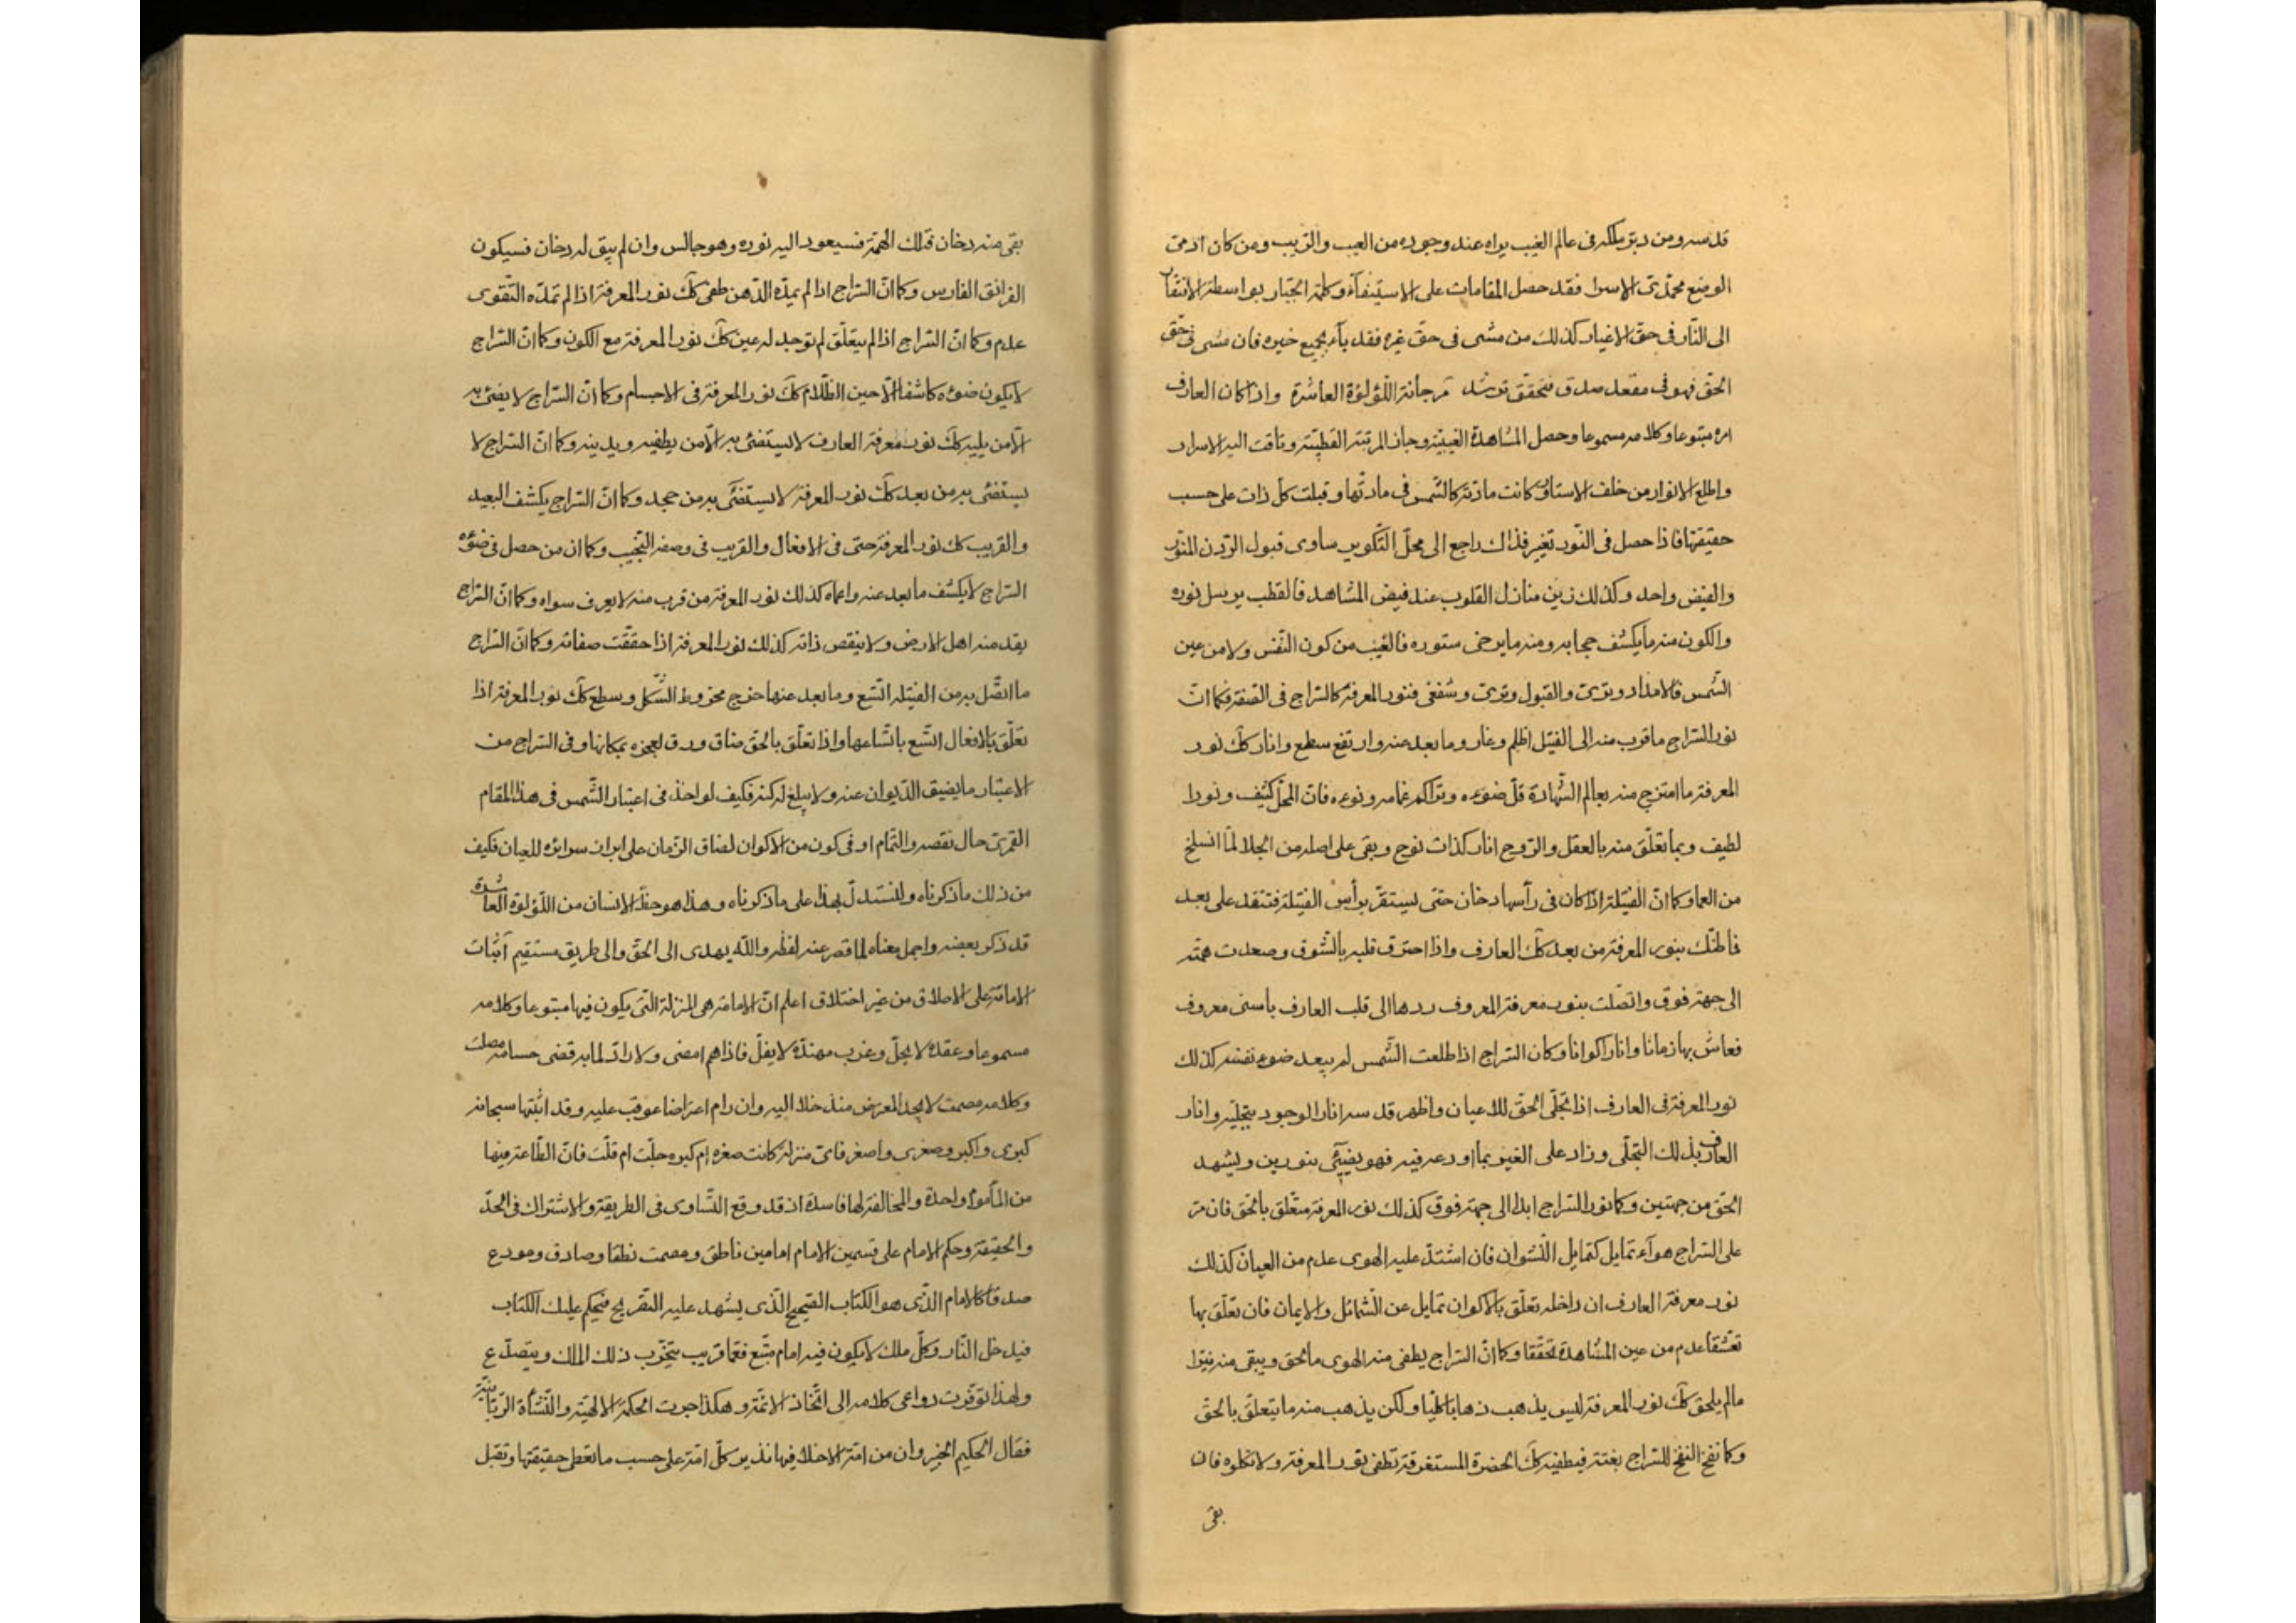 قدسه ومن دبر ملكه فى عالم الغيب يراه عند وجوده من العيب والريب ومن كان ادمى
الوضع محمدى الاسرا فقد حصل المقامات على الاستيفآء وكلمة الجبار بواسطة الانتقا
الى النار فى حق الاغيار كذلك من مشى فى حق غيره فقد بآء بجميع خيره فان مشى فى حق
الحق فهو فى مقعد صدق فتحقق ترشد مرجانة اللؤلؤة العاشرة واذا كان العارف
امره متبوعا وكلامه مسموعا وحصل المشاهدة الغيبية وحاز المرتبة القطبية وتاقت اليه الاسرار
واطلع الانوار من خلف الاستار كانت مادته كالشمس فى مادتها وقبلت كل ذات على حسب
حقيقتها فاذا حصل فى النور تغير فذاك راجع الى محل التكوير ساوى قبول الردن المنور
والفيض واحد وكذلك زين منازل القلوب عند فيض المشاهد فالقطب يرسل نوره
والكون منه ما يكشف حجابه ومنه ما يرخى ستوره فالغيب من كون النفس ولا من عين
الشمس فالامداد وترى والقبول وترى وشفعى فنور المعرفة كالسراج فى الصفة فكما ان
نور السراج ما قرب منه الى الفتيل اظلم وغار وما بعد عنه وارتفع سطع وانار كك نور
المعرفة ما امتزج منه بعالم الشهادة قل ضوءه وتراكم غمامه ونوءه فان المحل كثيف ونورا
لطيف وبما تعلق منه بالعقل والروح انار كذات نوح وبقى على اصله من الجلا لما انسلخ
من العما وكما ان الفتيلة اذا كان فى رأسها دخان حتى يستقر برأس الفتيلة فتتقد على بعد
بنور المعرفة من بعد كك العارف واذا احترق قلبه بالشوق وصعدت همته
الى جهة فوق واتصلت بنور معرفة المعروف ردها الى قلب العارف بأسنى معروف
فعاش بها زمانا وانار اكوانا وكان السراج اذا طلعت الشمس لم يبعد ضوءه نفسه كذلك
نور المعرفة فى العارف اذا تجلى الحق للاعيان واظهر قدسه انار الوجود بتجليه وانار
العارف بذلك التجلى وزاد على الغير بما اودعه فيه فهو يضيئ بنورين ويشهد
الحق من جهتين وكما نور السراج ابدا الى جهة فوق كذلك نور المعرفة متعلق بالحق فان مر
على السراج هوآء تمايل كتمايل النشوان فان اشتد عليه الهوى عدم من العيان كذلك
نور معرفة العارف ان داخله تعلق بالاكوان تمايل عن الشمائل والايمان فان تعلق بها
تعشقا عدم من عين المشاهدة تحققا وكما ان السراج يطفى منه الهوى ما لحق ويبقى منه نيرا
ما لم يلحق كك نور المعرفة ليس يذهب ذهابا كليا ولكن يذهب منه ما يتعلق بالحق
وكما نفخ النفخ للسراج بغتة فيطفيه كك الحضرة المستغرقة تطفى نور المعرفة ولا تكلوه فان
بقى
بقى منه دخان فتلك الهمة فسيعود اليه نوره وهو جالس وان لم يبق له دخان فسيكون
الفرانق الفارس وكما ان السراج اذا لم يمده الدهن طفى كك نور المعرفة اذا لم تمده التقوى
عدم وكما ان السراج اذا لم يتعلق لم توجد له عين كك نور المعرفة مع الكون وكما ان السراج
لا يكون ضوءه كاشفا الا حين الظلام كك نور المعرفة فى الاجسام وكما ان السراج لا يضئ به
الا من يليه كك نور معرفة العارف لا يستضئ به الا من يطفيه ويدينه وكما ان السراج لا
يستضئ به من بعد كك نور المعرفة لا يستضئ به من جحد وكما ان السراج يكشف البعيد
والقريب كك نور المعرفة حتى فى الافعال والقريب فى وصفه التجيب وكما ان من حصل فى ضوء
السراج لا يكشف ما بعد عنه واعماه كذلك نور المعرفة من قرب منه لا يعرف سواه وكما ان السراج
يقد منه اهل الارض ولا ينقص ذاته كذلك نور المعرفة اذا حققت صفاته وكما ان السراج
ما اتصل به من الفتيلة اتسع وما بعد عنها خرج مخروط الشكل وسطع كك نور المعرفة اذا
تعلق بالافعال اتسع باتساعها واذا تعلق بالحق ضاق ورق لعجزه بمكانها وفى السراج من
الاعتبار ما يضيق الديوان عنه ولا يبلغ له كنه فكيف لو اخذ فى اعتبار الشمس فى هذا المقام
القمرى حال نقصه والتمام او فى كون من الاكوان لضاق الزمان على ابراز سرائره للعيان فكيف
من ذلك ما ذكرناه وليستدل بهذا على ما ذكرناه وهذا هو حظ الانسان من اللؤلؤة العاشرة
قد ذكر بعضه واجمل معناه لما قصر عنه لفظه والله يهدى الى الحق والى طريق مستقيم اثبات
الامامة على الاطلاق من غير اختلاق اعلم ان الامامة هى المنزلة التى يكون فيها متبوعا وكلامه
مسموعا وعقده لا يحل وغرب مهنده لا يفل فاذا هم امضى ولا راد لما به قضى حسامه مصلت
وكلامه مصمت لا يجد المعترض مندخلا اليه وان رام اعتراضا عوقب عليه وقد اثبتها سبحانه
كبرى واكبر وصغرى واصغر فاى منزلة كانت صغره ام كبره جلت ام قلت فان الطاعة فيها
من المأمور واحدة والمخالفة لها فاسدة اذ قد وقع التساوى فى الطريقة والاشتراك فى الحد
والحقيقة وحكم الامام على قسمين الامام امامين ناطق ومصمت نطقا وصادق ومودع
صدقا كالامام الذى هو الكتاب الصحيح الذى يشهد عليه التقريح فيحكم عليك الكتاب
فيدخل النار وكل ملك لا يكون فيه امام متبع فعما قريب يتخرب ذلك الملك ويتصدع
ولهذا توفرت دواعى كلامه الى اتخاذ الائمة وهكذا جرت الحكمة الالهية والنشأة الربانية
فقال الحكيم الخبير وان من امة الا خلا فيها نذير كل امة على حسب ما تعطى حقيقتها وتقبل